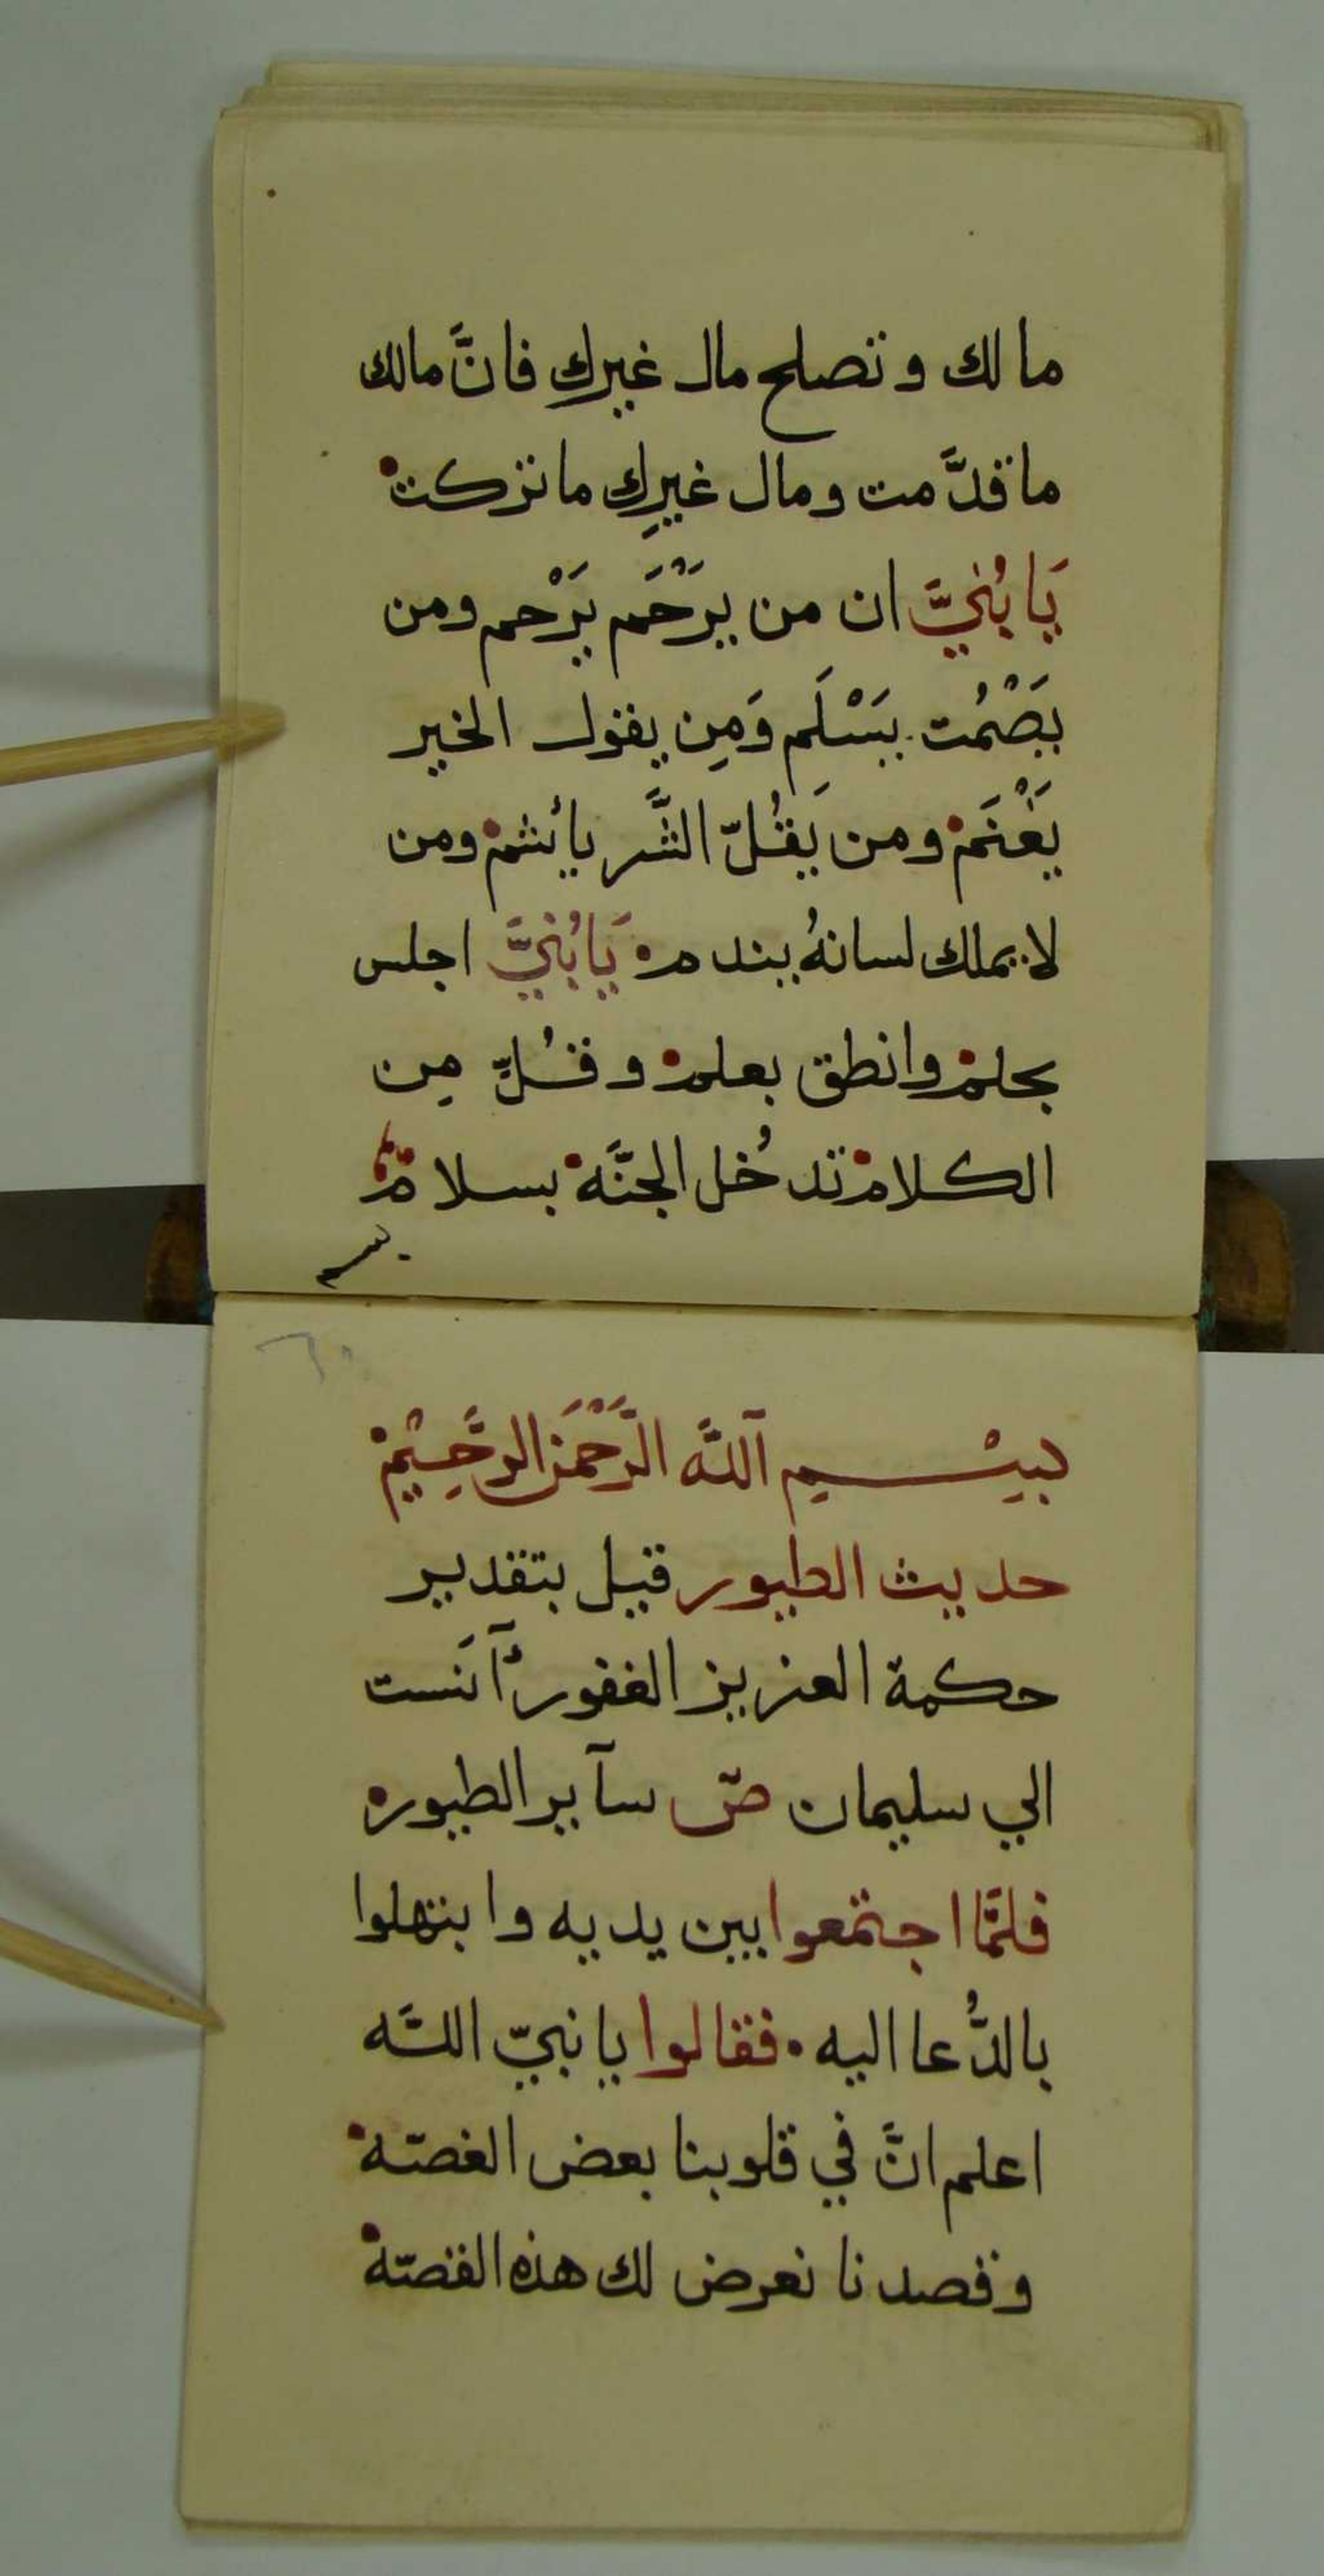 ما لك وتصلح مال غيرك فانَّ مالك
ما قدَّمت ومال غيرِك ما تركت
يَا بُنَيَّ ان من يَرْحَم يَرْحم ومن
يَصْمُت يَسْلَم وَمِن يقول الخير
يَغْنَم ومن يَقُلّ الشَّر يأثم ومن
لا يملك لسانهُ يندم يَا بُنَيَّ اجلس
بحلم وانطق بعلم وقُلِّ مِن
الكلام تدخُل الجنَّة بسلام
بِسْمِ اللَّه الرَّحْمَن الرَّحِيْم
حديث الطيور قيل بتقدير
حكمة العزيز الغفور آنَست
الي سليمان صّ سآير الطيور
فلمَّا اجتمعوا بين يديه وابتهلوا
بالدُّعا اليه فقالوا يا نبيّ اللَّه
اعلم انَّ في قلوبنا بعض الغصّة
وقصدنا نعرض لك هذه القصّة